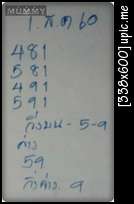 MUMMY
1. ส.ค 60
481
581
491
591
วิ่งบน - 5-9
ล่าง
59
วิ่งล่าง. 9
[338x600] upic.me